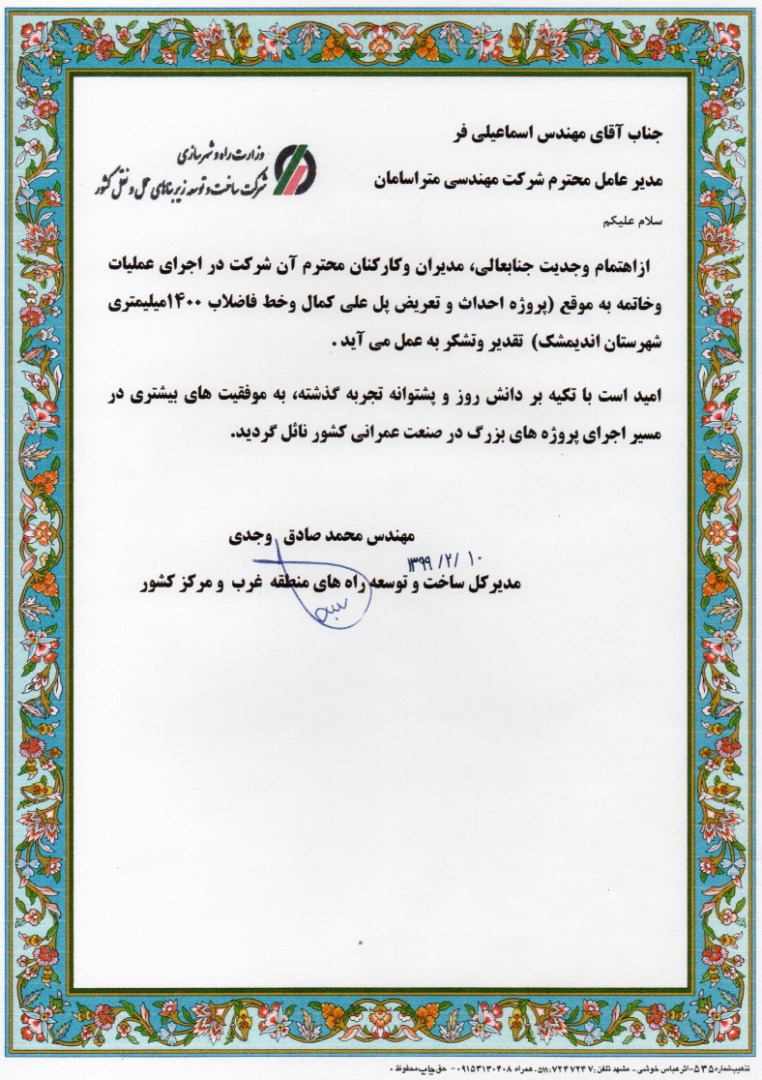 جناب آقای مهندس اسماعیلی فر
وزارت راه و شهرسازی
مدیر عامل محترم شرکت مهندسی متراسامان
شرکت ساخت و توسعه زیربناهای حمل و نقل کشور
سلام علیکم
ازاهتمام وجدیت جنابعالی، مدیران وکارکنان محترم آن شرکت در اجرای عملیات
وخاتمه به موقع (پروژه احداث و تعریض پل علی کمال وخط فاضلاب ۱۴۰۰میلیمتری
شهرستان اندیمشک) تقدیر وتشکر به عمل می آید .
امید است با تکیه بر دانش روز و پشتوانه تجربه گذشته، به موفقیت های بیشتری در
مسیر اجرای پروژه های بزرگ در صنعت عمرانی کشور نائل گردید.
مهندس محمد صادق وجدی
۱۳۹۹/۲/۱۰
مدیرکل ساخت و توسعه راه های منطقه غرب و مرکز کشور
تذهیب شماره ۵۳۵-اثر عباس خوشی - مشهد تلفن: ۷۲۴۷۲۴۷ :۵۱۱. همراه ۰۹۱۵۳۱۳۰۴۰۸ - حق چاپ محفوظ